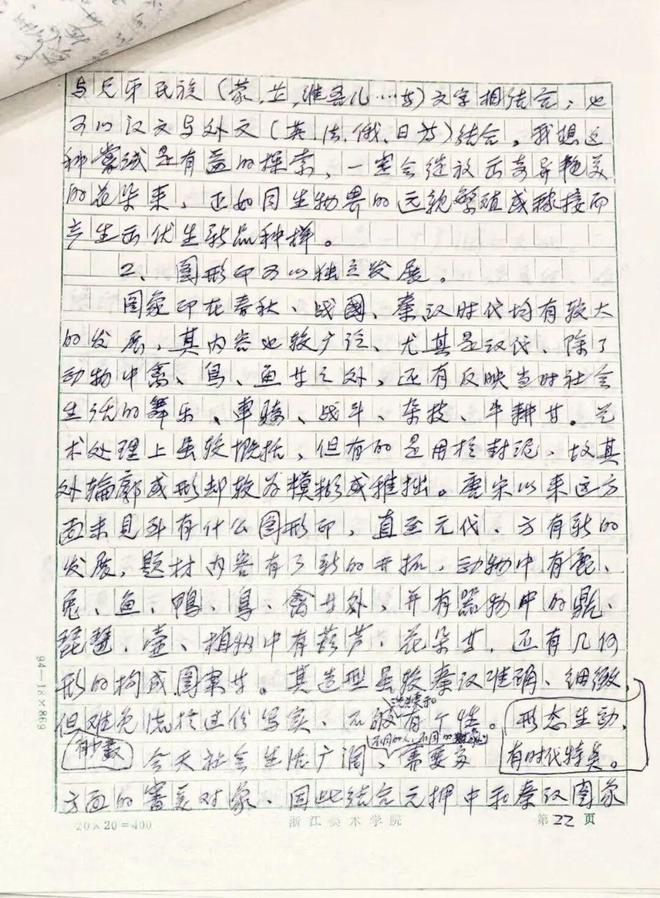 与兄弟民族(蒙、藏、维吾儿…等)文字相结合;也
可以汉文与外文(英、法、俄、日等)结合。我想这
种尝试是有益的探索,一定会绽放出奇异艳美
的花朵来,正如同生物界的远韵繁殖或嫁接而
产生出优生新品种样。
2、图形印可以独立发展。
图象印在春秋、战國、秦汉时代均有较大
的发展,其内容也较广泛、尤其是汉代、除了
动物中禽、鸟、鱼等之外,还有反映当时社会
生活的舞乐、車骑、战斗、杂技、牛耕等。艺
术处理上虽较概括,但有的是用于封泥,故其
外輪廓成形却较为模糊或稚拙。唐宋以来这方
面未见到有什么图形印,直至元代、方有新的
发展,题材内容有了新的开拓,动物中有鹿、
兔、鱼、鴨、鳥、禽等外,并有器物中的鼎、
琵琶、壶、植物中有葫芦、花朵等,还有几何
形的构成图案等。其造型虽较秦汉准确、细緻,
但难免流于过份写实、不 有个性。 形态生动,
有时代特美。
有少数 今天社会生活广阔、需要多
方面的審美对象、因此结合元押中和秦汉图象
20×20=400 浙江美术学院 第22页
94—12×869